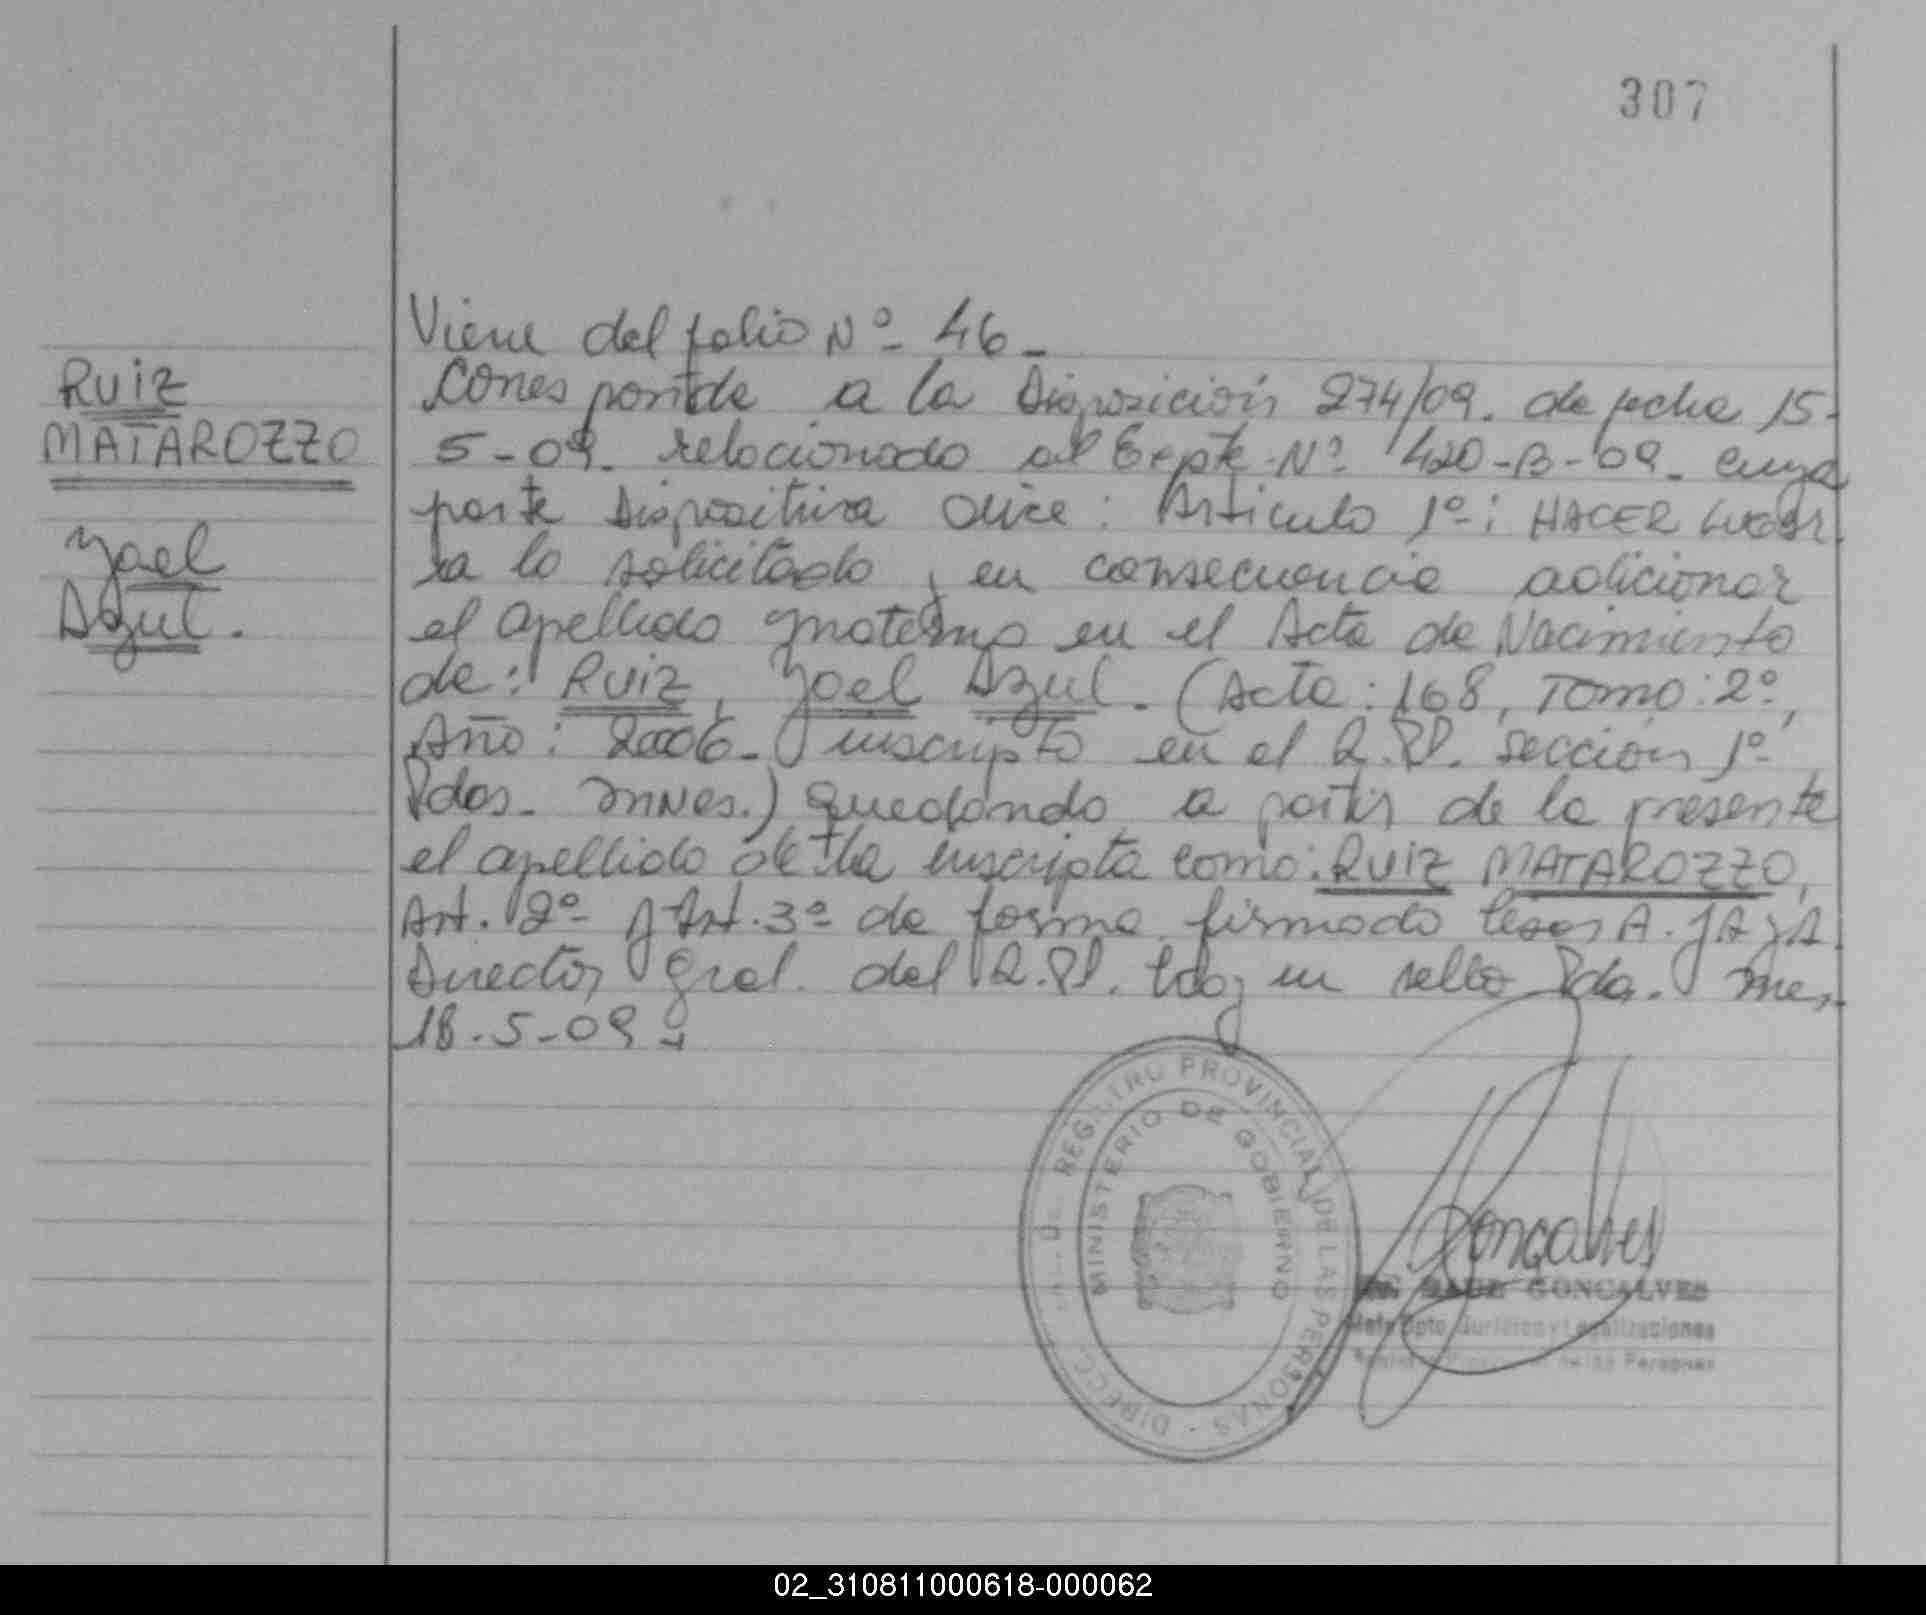 307
Viene del folio Nº- 46-
Ruiz
MATAROZZO
Yael
Azul.
Corresponde a la Disposición 274/09. de fecha 15-
5-09. relacionado al Expte. Nº 420-B-09- cuya
parte Dispositiva dice: Articulo 1º-: HACER LUGAR
a lo solicitado, en consecuencia adicionar
el apellido materno en el Acta de Nacimiento
de: Ruiz, Yael Azul. (Acta: 168, Tomo: 2º,
Año: 2006- inscripto en el R.P. Sección 1º-
Pdas. Mnes.) quedando a partir de la presente
el apellido de la inscripta como: RUIZ MATAROZZO,
Art. 2º- y Art. 3º- de forma. firmado A.
Director Gral. del R.P. hay un sello Pda.
18-5-09
REGISTRO PROVINCIAL DE LAS PERSONAS
MINISTERIO DE GOBIERNO
Gonçalves
GONCALVES
Jefe Dpto. Jurídico y Legalizaciones
de las Personas
02_310811000618-000062